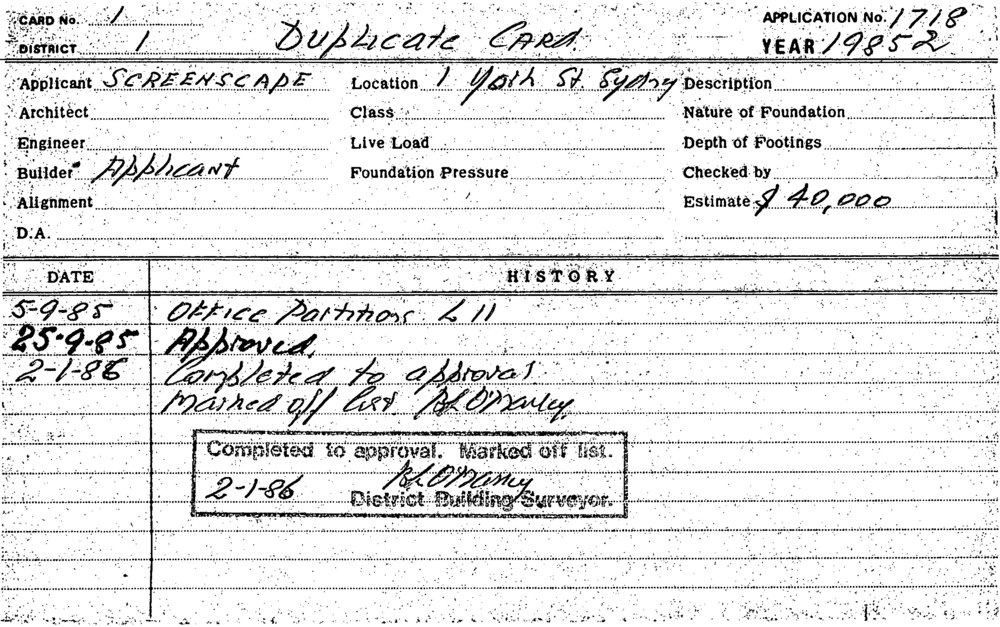 CARD No. 1
DISTRICT 1
DUPLICATE CARD.
APPLICATION No. 1718
YEAR 1985 2
Applicant SCREENSCAPE Location 1 York St. Sydney Description
Architect Class Nature of Foundation
Engineer Live Load Depth of Footings
Builder Applicant Foundation Pressure Checked by
Alignment Estimate $ 40,000
D.A.
DATE HISTORY
5-9-85 Office Partitions L 11
25-9-85 Approved.
2-1-86 Completed to approval
marked off list.
Completed to approval. Marked off list.
2-1-86
District Building Surveyor.